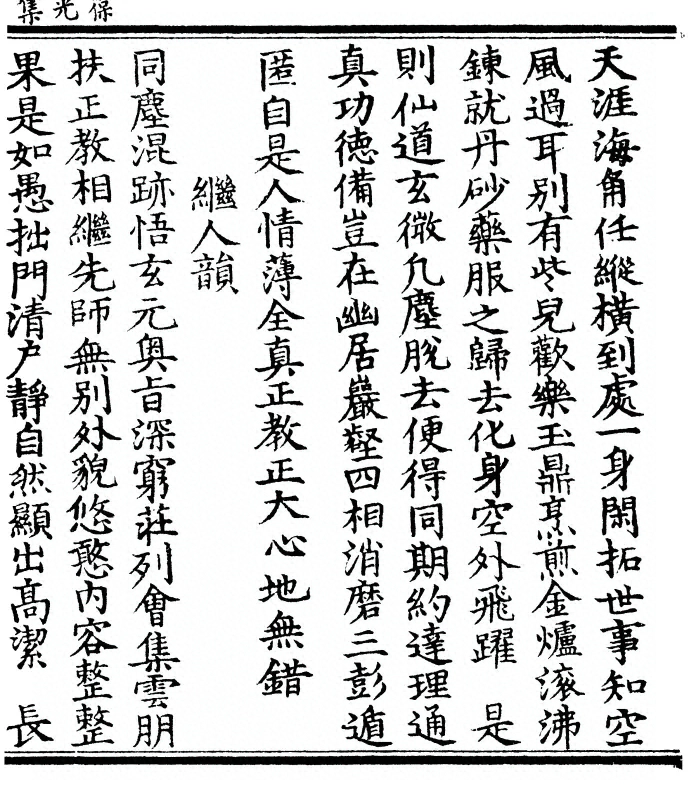 保光集
天涯海角任縱橫到處一身閑拓世事知空
風過耳別有些兒歡樂玉鼎烹煎金爐滾沸
鍊就丹砂藥服之歸去化身空外飛躍　是
則仙道玄微凢塵脫去便得同期約達理通
真功德備豈在幽居巖壑四相消磨三彭遁
匿自是人情薄全真正教正大心地無錯
繼人韻
同塵混跡悟玄元奧旨深窮莊列會集雲朋
扶正教相繼先師無別外貌悠憨內容整整
果是如愚拙門清户靜自然顯出高潔　長